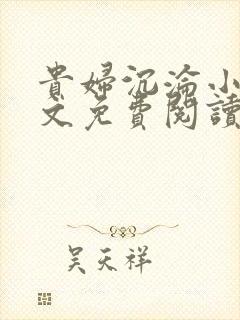 貴婦沉淪小
文免費閱讀
吴天祥